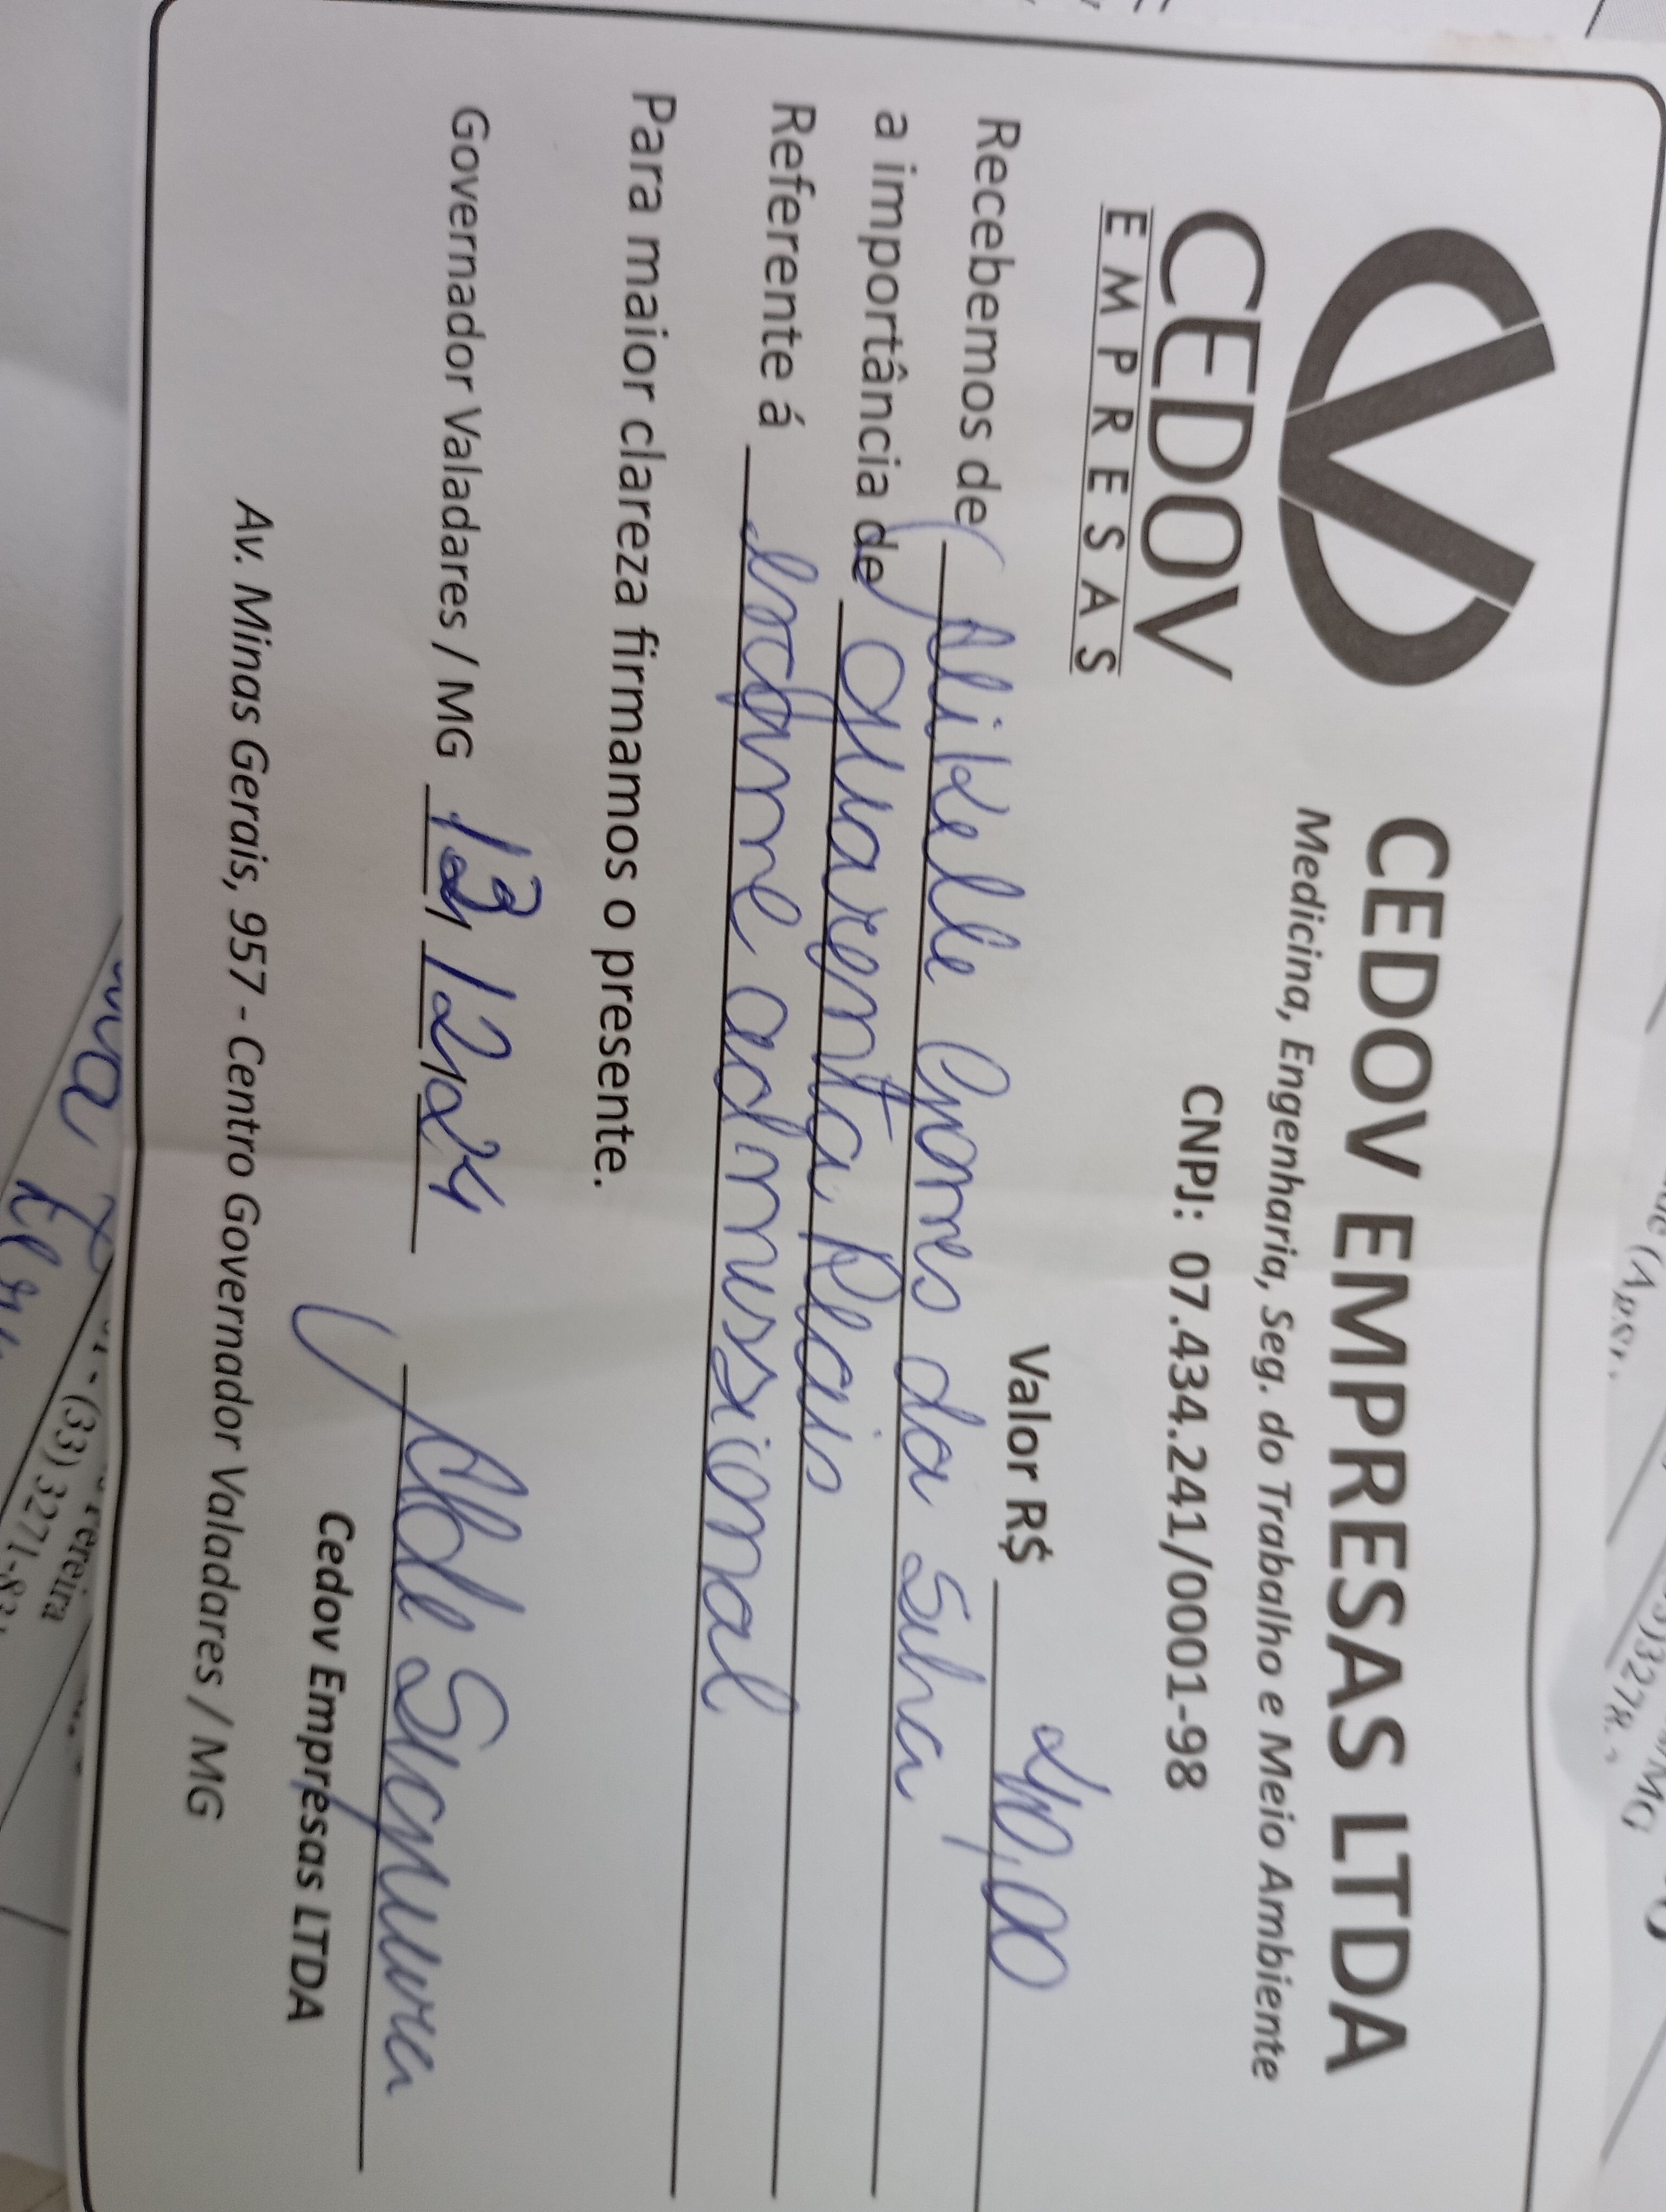 CEDOV
EMPRESAS
CEDOV EMPRESAS LTDA
Medicina, Engenharia, Seg. do Trabalho e Meio Ambiente
CNPJ: 07.434.241/0001-98
Valor R$ 40,00
Recebemos de Alidelle Gomes da Silva
a importância de Quarenta Reais
Referente á Exame admissional
Para maior clareza firmamos o presente.
Governador Valadares / MG 13/12/2024
Cedov Empresas LTDA
Av. Minas Gerais, 957 - Centro Governador Valadares / MG